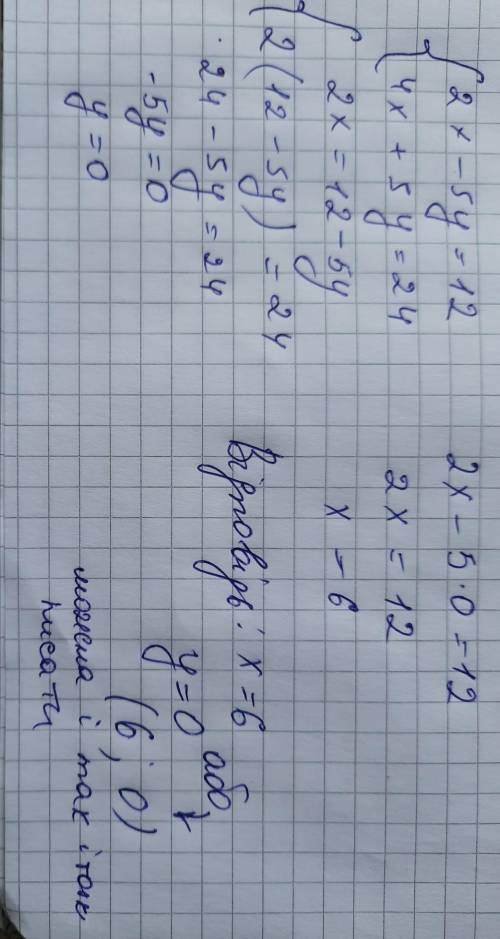 2x - 5y = 12
4x + 5y = 24
2x = 12 - 5y
2(12 - 5y) = 24
24 - 5y = 24
-5y = 0
y = 0
2x - 5·0 = 12
2x = 12
x - 6
Відповідь: x = 6
y = 0 або
(6; 0)
можна і так і так
писати